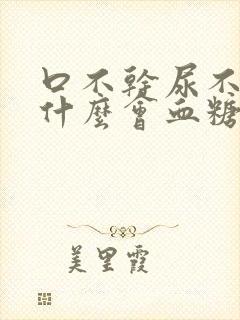 口不幹尿不
什麼會血糖
美里霞